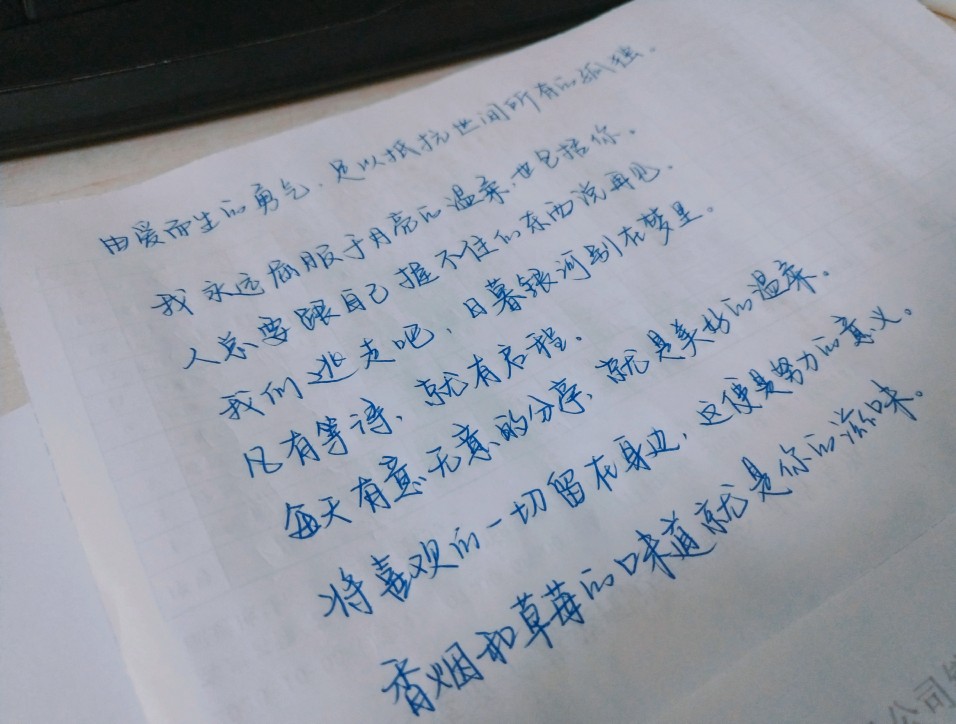 由爱而生的勇气，足以抵抗世间所有的孤独。
我永远屈服于月亮的温柔，也包括你。
人总要跟自己握不住的东西说再见。
我们逃走吧，日暮银河到在梦里。
凡有等待，就有启程。
每天有意无意的分享，就是美好的温柔。
将喜欢的一切留在身边，这便是努力的意义。
香烟和草莓的味道就是你的滋味。
公司